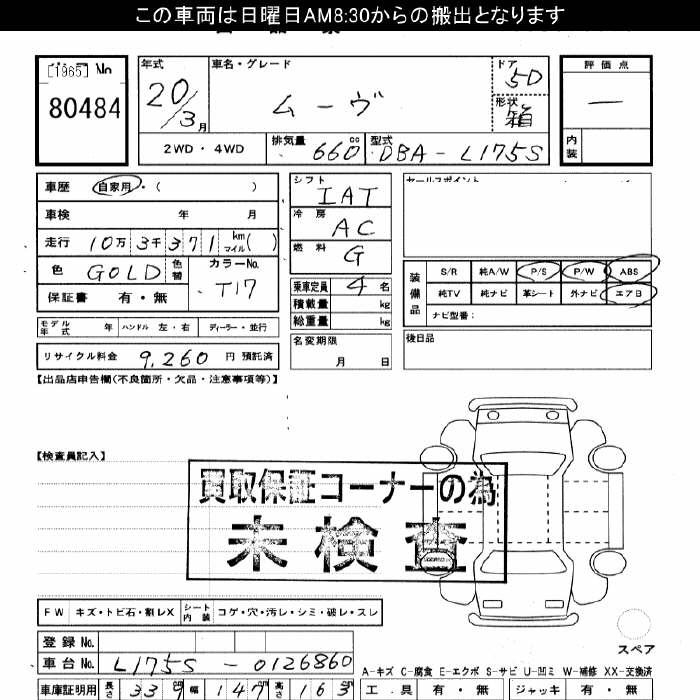 この車両は日曜日AM8:30からの搬出となります
[1965] No
80484
年式 20/3月
車名・グレード ムーヴ
ドア 5D
形状 箱
評価点 —
内装
2WD・4WD
排気量 660 cc
型式 DBA-L175S
車歴 自家用・( )
車検 年 月
走行 10万3千371 km マイル( )
色 GOLD 色替
カラーNo. T17
保証書 有・無
シフト IAT
冷房 AC
燃料 G
乗車定員 4名
積載量 kg
総重量 kg
セールスポイント
装備品
S/R 純A/W P/S P/W ABS
純TV 純ナビ 革シート 外ナビ エアB
ナビ型番:
モデル年式 年 ハンドル 左・右 ディーラー・並行
名変期限 月 日
後日品
リサイクル料金 9,260 円 預託済
【出品店申告欄(不良箇所・欠品・注意事項等)】
【検査員記入】
買取保証コーナーの為
未検査
FW キズ・トビ石・割レX シート内装 コゲ・穴・汚レ・シミ・破レ・スレ
スペア
登録 No.
車台 No. L175S-0126860
A-キズ C-腐食 E-エクボ S-サビ U-凹ミ W-補修 XX-交換済
車庫証明用 長さ 339 幅 147 高さ 163
工具 有・無 ジャッキ 有・無